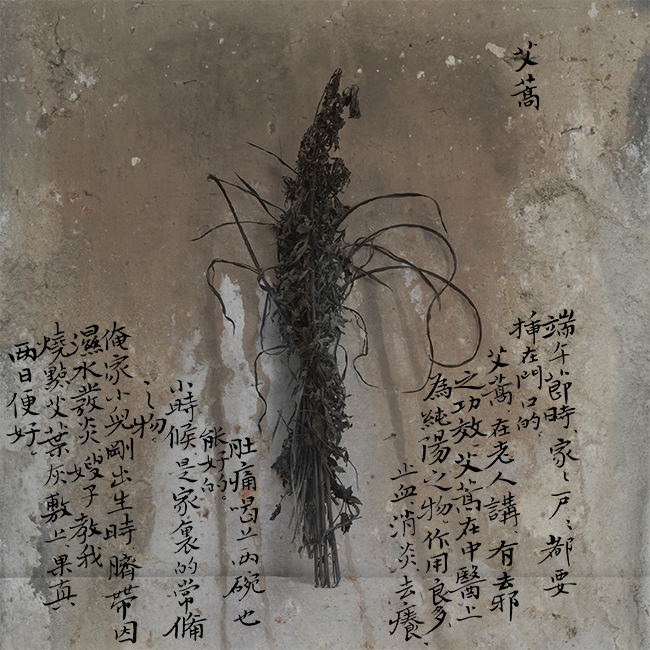 艾蒿
端午節時、家々戶々都要
挿在門口的
艾蒿、在老人講、有去邪
之功效、艾蒿在中醫上
為純陽之物、作用良多
止血、消炎、去癢、
肚痛喝上兩碗也
能好的。
小時候是家裏的常備
之物
俺家小兒剛出生時臍帶因
濕水發炎、嫂子教我
燒點艾葉灰敷上果真
兩日便好。